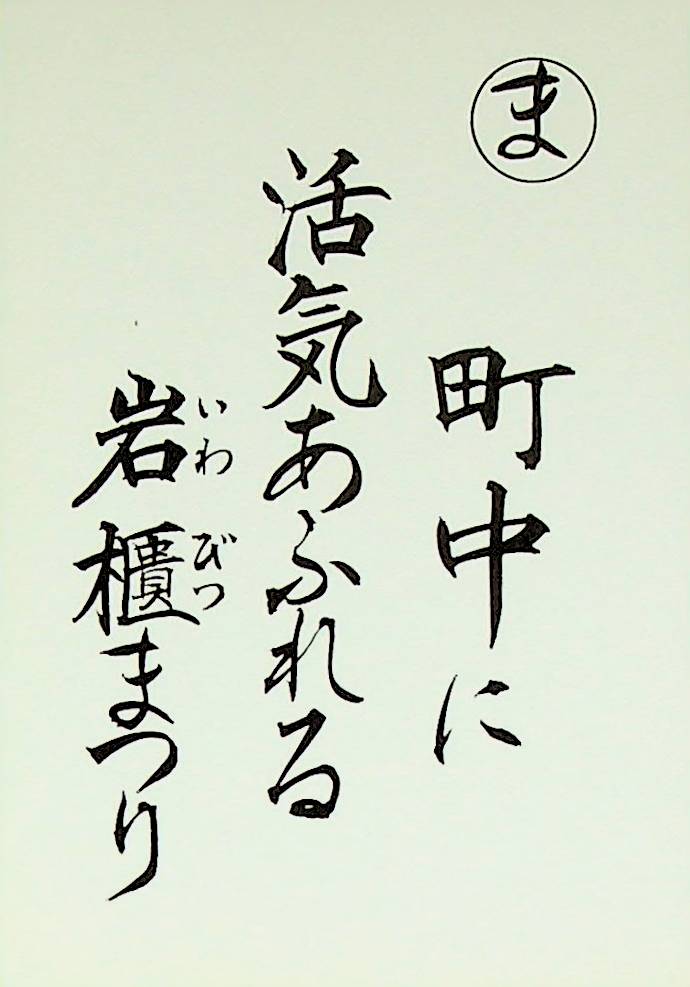 ま
町中に
活気あふれる
岩櫃まつり
いわびつ